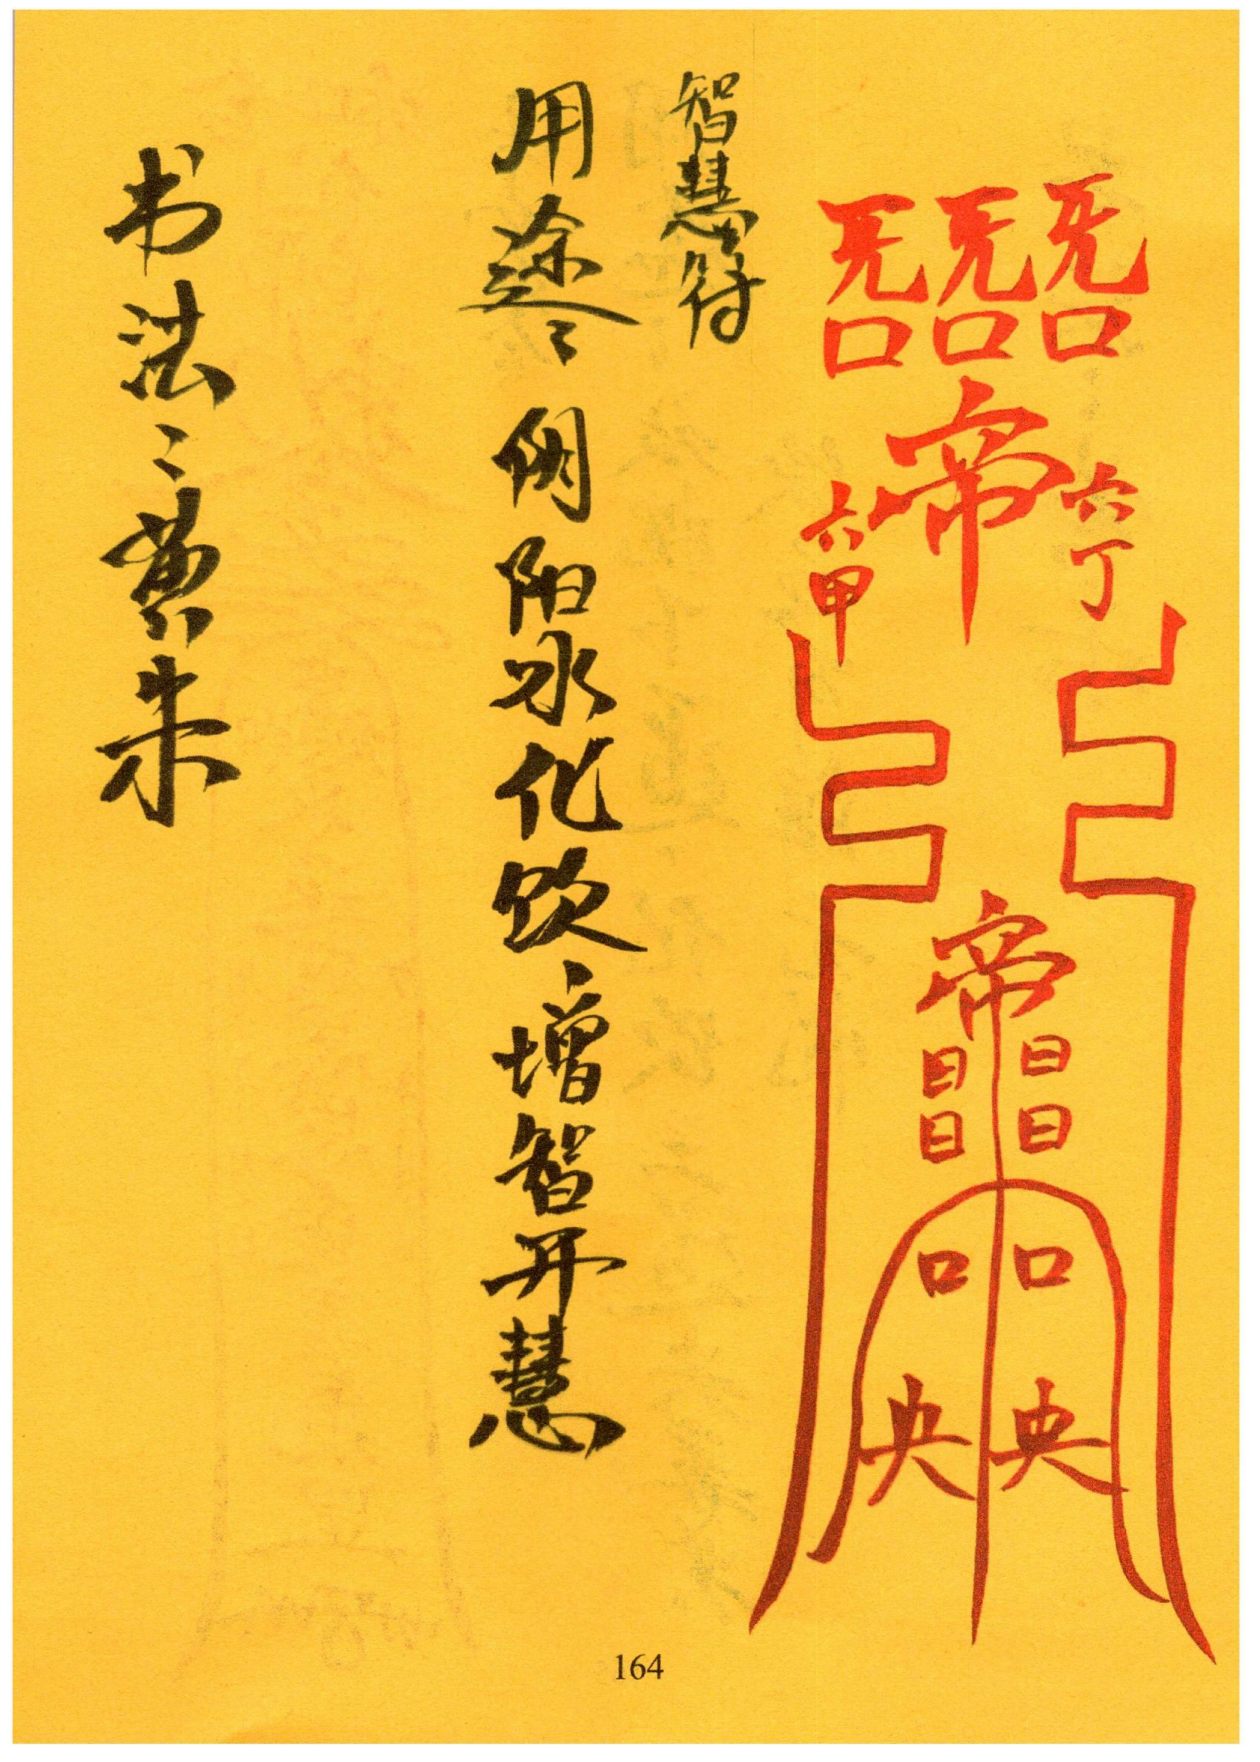 智慧符
用途：阴阳水化饮，增智开慧
书法：黄朱
帝
六丁
六甲
帝
日日
日日
口口
央央
164